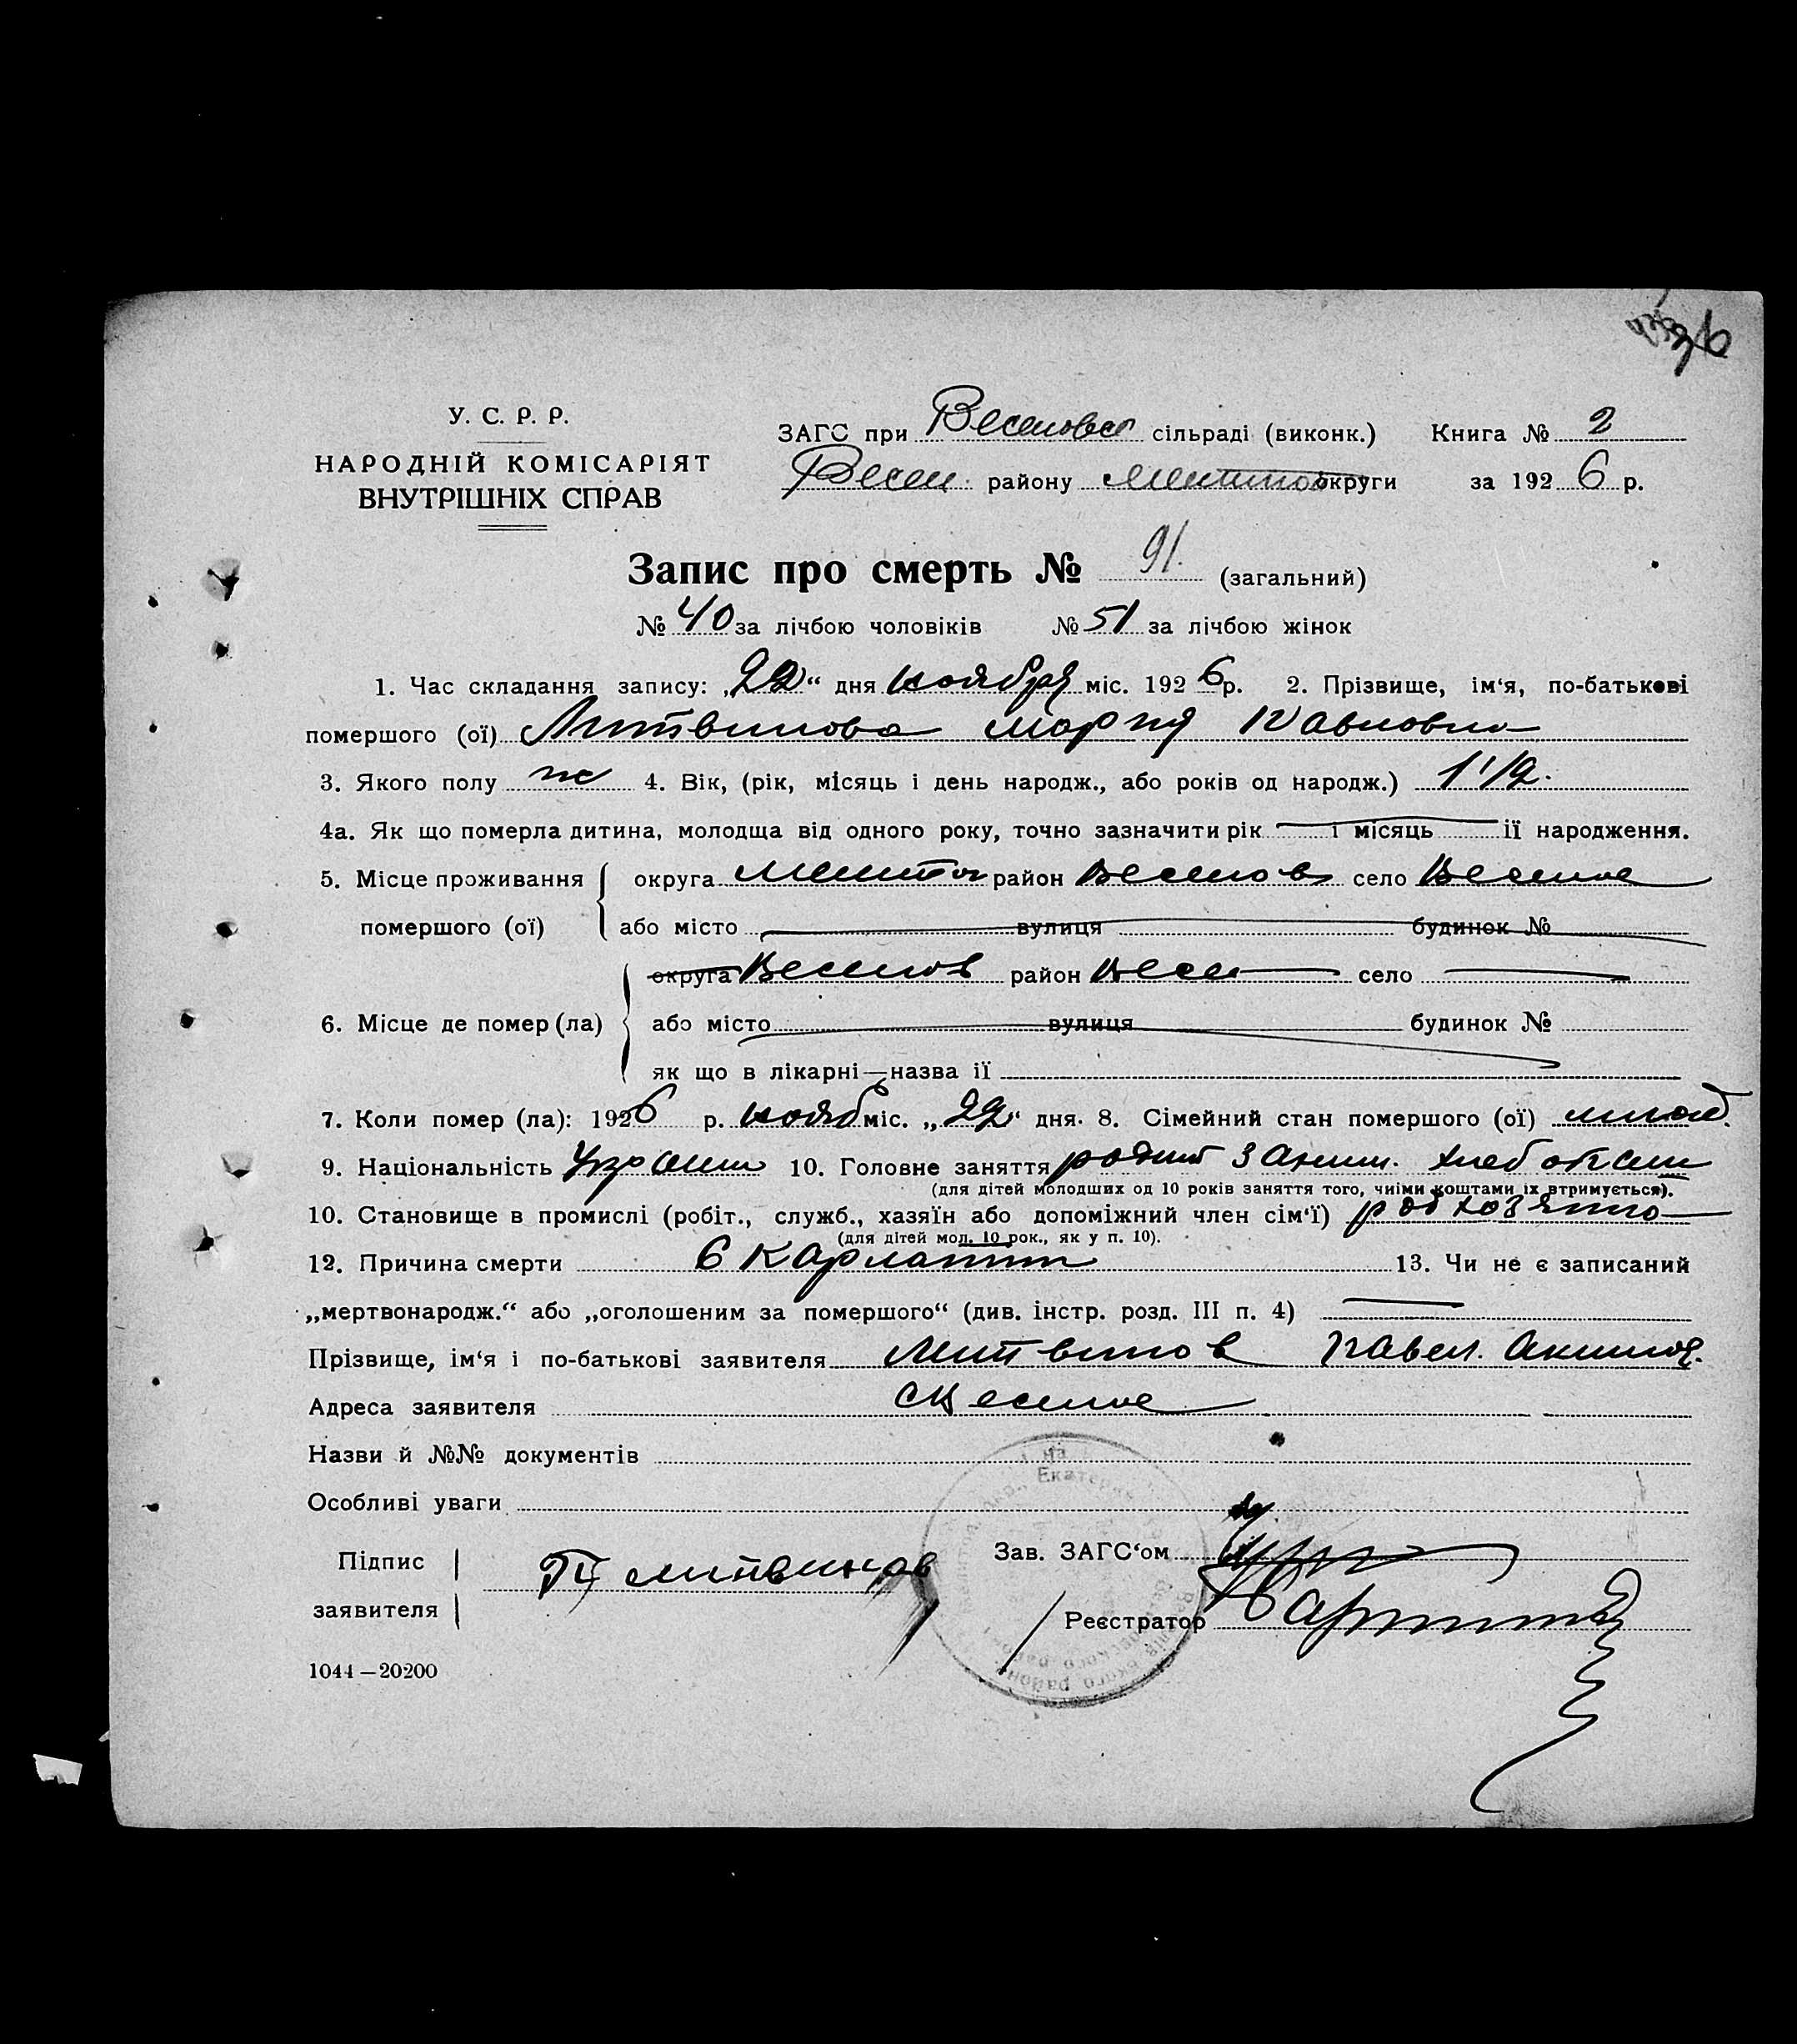 У. С. Р. Р.
НАРОДНІЙ КОМІСАРІЯТ
ВНУТРІШНІХ СПРАВ
ЗАГС при Веселовск сільраді (виконк.) Книга № 2
Весел. району Мелитоп округи за 1926 р.
Запис про смерть № 91. (загальний)
№ 40 за лічбою чоловіків № 51 за лічбою жінок
1. Час складання запису: „22“ дня ноября міс. 1926 р. 2. Прізвище, ім‘я, по-батькові
помершого (ої) Литвинова Мария Павловна
3. Якого полу ж 4. Вік, (рік, місяць і день народж., або років од народж.) 1 1/2.
4а. Як що померла дитина, молодща від одного року, точно зазначити рік і місяць її народження.
5. Місце проживання округа Мелитоп район Веселов село Веселое
помершого (ої) або місто вулиця будинок №
округа Веселов район Весел село
6. Місце де помер (ла) або місто вулиця будинок №
як що в лікарні—назва її
7. Коли помер (ла): 1926 р. нояб міс. „22“ дня. 8. Сімейний стан помершого (ої)
9. Національність Украин 10. Головне заняття родит заним. хлебопаш
(для дітей молодших од 10 років заняття того, чиїми коштами їх втримується).
10. Становище в промислі (робіт., служб., хазяїн або допоміжний член сім‘ї)
(для дітей мол. 10 рок., як у п. 10).
12. Причина смерти Скарлатин 13. Чи не є записаний
„мертвонародж.“ або „оголошеним за помершого“ (див. інстр. розд. III п. 4)
Прізвище, ім‘я і по-батькові заявителя Литвинов Павел. Акимов.
Адреса заявителя с Веселое
Назви й №№ документів
Особливі уваги
Підпис
заявителя П Литвинов
Зав. ЗАГС‘ом
Реєстратор
1044—20200